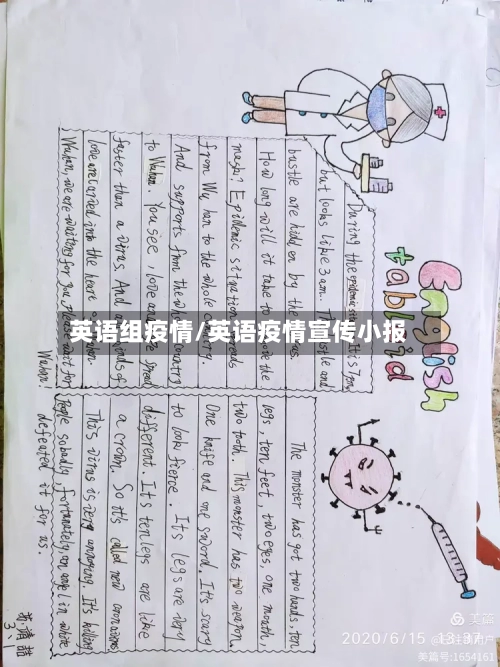 English
tabloid
During the epidemic
but looks like 3 am. The bustle and
bustle are hidden by the
How long will it take to remove the
mask? Epidemic situation spreads
from Wu han to the whole country.
And supports from the whole country
to Wuhan. You see, love can spread
faster than a virus. And all kinds of
love are carried into the heart of
Wuhan, we are waiting for you. Please wait for
Wuhan!
The monster has got two hands, ten
legs, ten feet, two eyes, one mouth,
two tooth. This monster has two weapon.
One knife and one sword. It's
to look fierce. It's legs are very
different. It's ten legs are like
a crown. So it's called new
This virus is very annoying. It's killing
People Fortunately, an angel in white
defeated it for us.
3.1
英语组疫情/英语疫情宣传小报
2020/6/15 13:37
美篇
美篇号:1654161